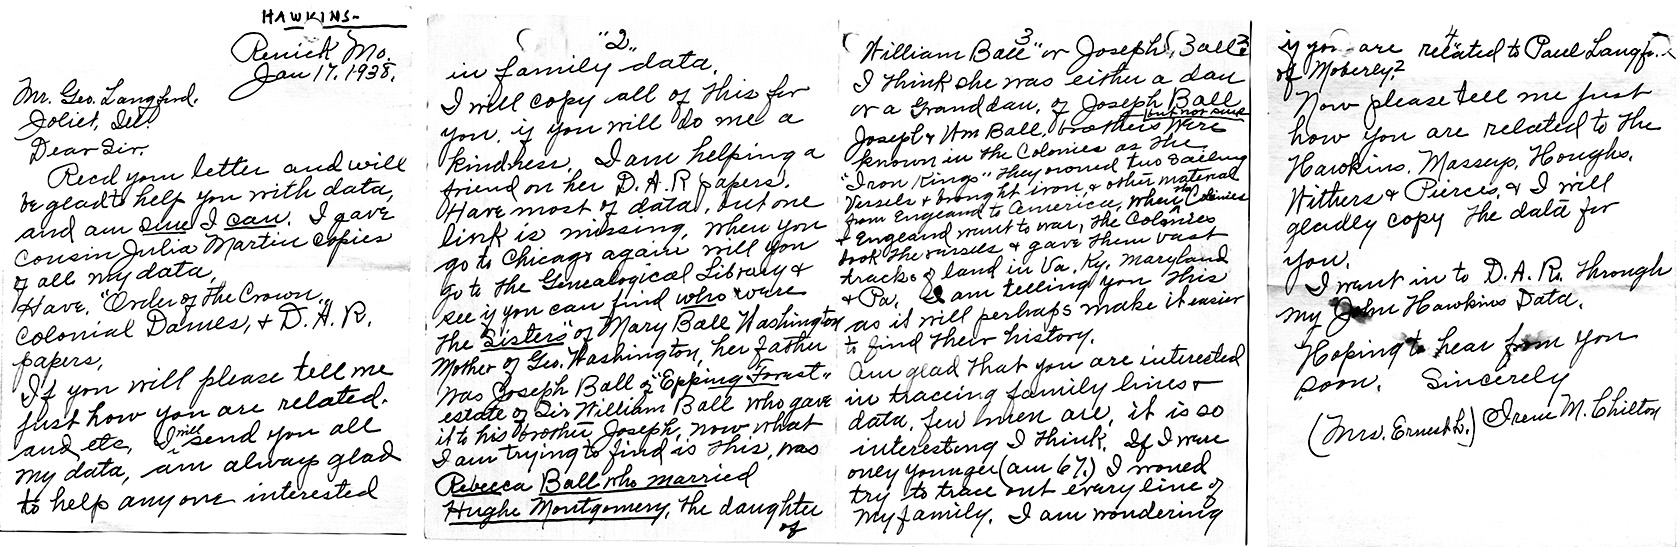 HAWKINS-
Renick Mo.
Jan 17. 1938.
Mr. Geo. Langford.
Joliet, Ill.
Dear Sir.
Recd your letter and will
be glad to help you with data,
and am sure I can. I gave
cousin Julia Martin copies
of all my data,
Have, "Order of the Crown,"
Colonial Dames, & D.A.R.
papers,
If you will please tell me
just how you are related.
and etc, I will send you all
my data, am always glad
to help anyone interested
"2"
in family data.
I will copy all of this for
you, if you will do me a
kindness. I am helping a
friend on her D.A.R papers.
Have most of data, but one
link is missing, when you
go to Chicago again will you
go to the Genealogical Library &
see if you can find who were
the Sisters" of Mary Ball Washington
Mother of Geo. Washington, her father
was Joseph Ball of "Epping Forest"
estate of Sir William Ball who gave
it to his brother Joseph, now what
I am trying to find is this, was
Rebecca Ball who married
Hughe Montgomery, the daughter
of
3
William Ball" or Joseph, Ball?
I think she was either a dau
or a Granddau, of Joseph Ball
but not sure
Joseph & Wm Ball, brothers were
known in the Colonies as the
"Iron Kings" they owned two sailing
vessels & brought iron, & other material
from England to America, when the Colonies
& England want to war, the Colonies
took the vessels & gave them vast
tracks of land in Va. Ky. Maryland
& Pa. I am telling you this
as it will perhaps make it easier
to find their history.
Am glad that you are interested
in tracing family lines &
data, few men are, it is so
interesting I think. If I were
only younger (am 67.) I would
try to trace out every line of
my family. I am wondering
4
if you are related to Paul Langf
of Moberly?
Now please tell me just
how you are related to the
Hawkins, Masseys, Houghs,
Withers & Pierces, & I will
gladly copy the data for
you.
I want in to D.A.R. through
my John Hawkins Data.
Hoping to hear from you
soon. Sincerely
(Mrs. Ernest L.) Irene M. Chilton